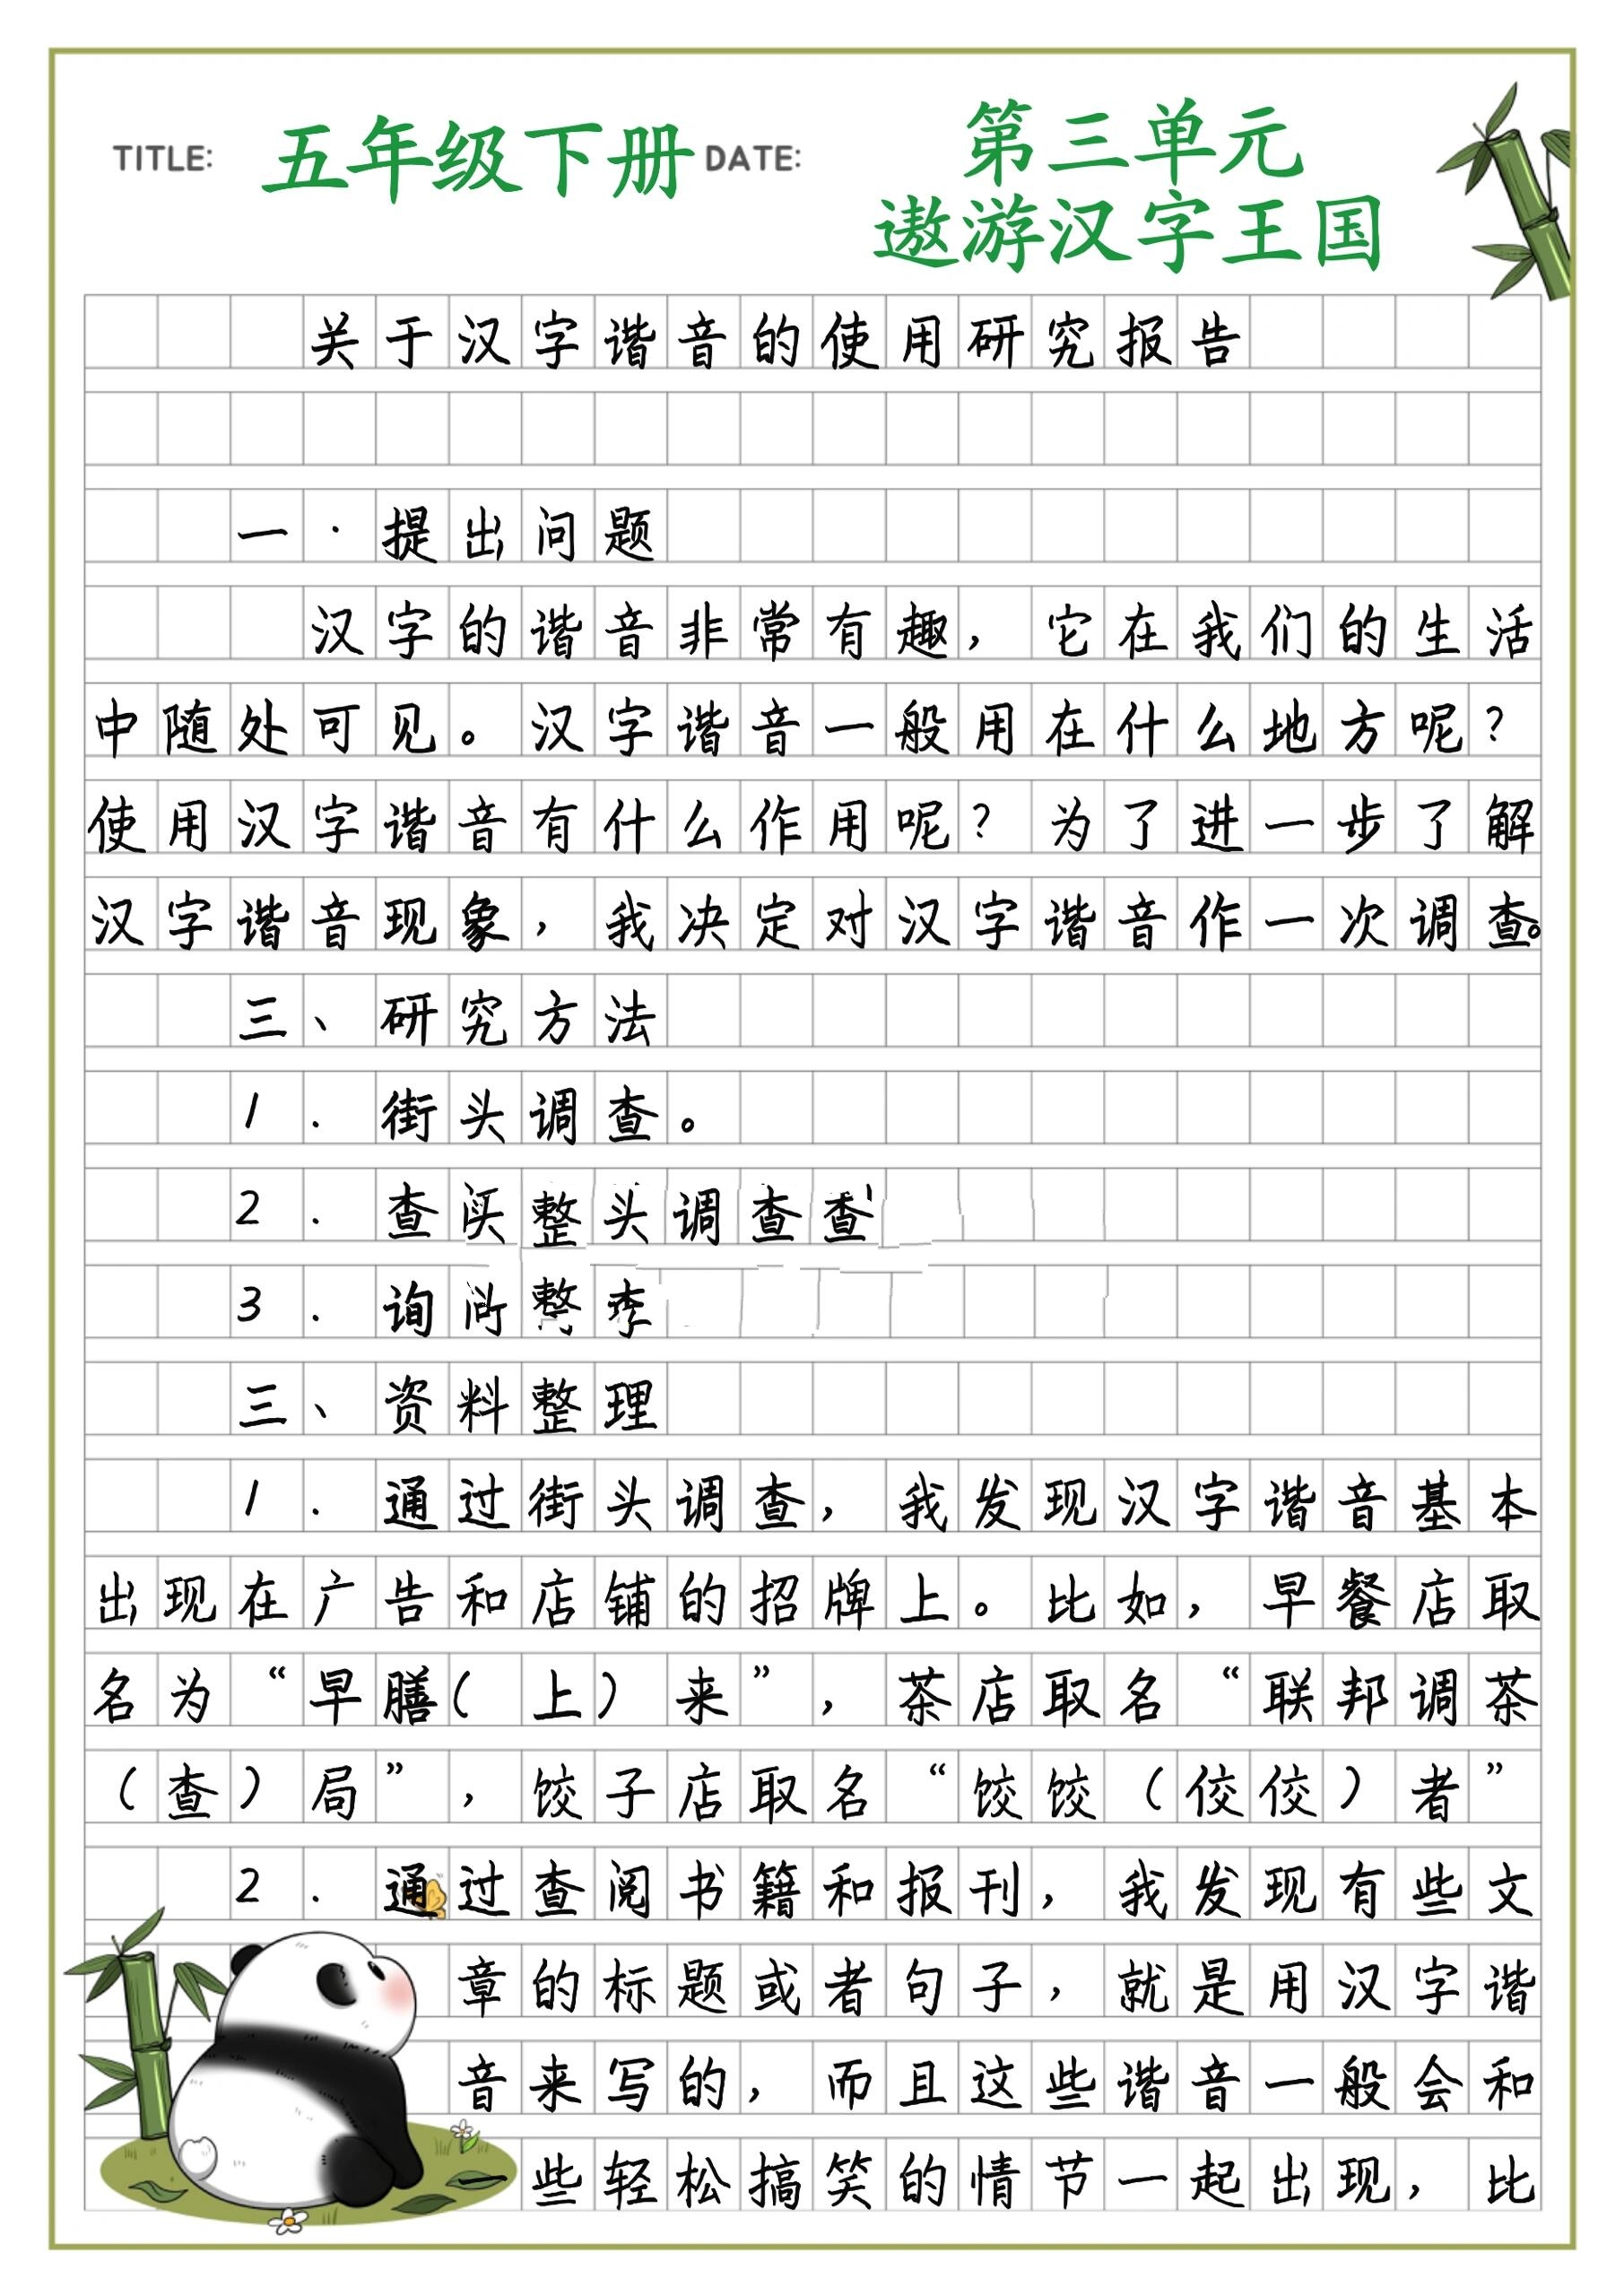 TITLE: 五年级下册 DATE: 第三单元
遨游汉字王国
关于汉字谐音的使用研究报告
一·提出问题
汉字的谐音非常有趣，它在我们的生活
中随处可见。汉字谐音一般用在什么地方呢？
使用汉字谐音有什么作用呢？为了进一步了解
汉字谐音现象，我决定对汉字谐音作一次调查。
三、研究方法
1.街头调查。
2.查 整头调查查
3.询
三、资料整理
1.通过街头调查，我发现汉字谐音基本
出现在广告和店铺的招牌上。比如，早餐店取
名为“早膳（上）来”，茶店取名“联邦调茶
（查）局”，饺子店取名“饺饺（佼佼）者”
2.通过查阅书籍和报刊，我发现有些文
章的标题或者句子，就是用汉字谐
音来写的，而且这些谐音一般会和
一些轻松搞笑的情节一起出现，比